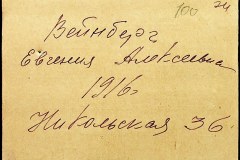 100 24
Вейнберг
Евгения Алексевна
1916
Никольская 36